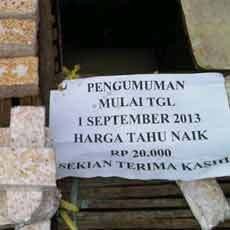 PENGUMUMAN
MULAI TGL
1 SEPTEMBER 2013
HARGA TAHU NAIK
RP 20.000
SEKIAN TERIMA KASIH